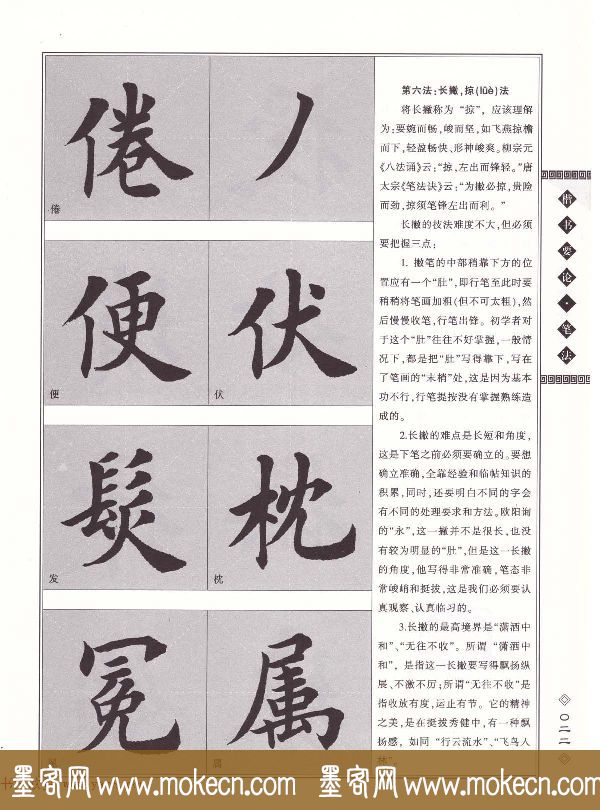 倦
便
伏
髮
发
枕
枕
冕
属
第六法:长撇,掠(lüè)法
将长撇称为“掠”,应该理解
为:要婉而畅,峻而坚,如飞燕掠檐
而下,轻盈畅快、形神峻爽。柳宗元
《八法诵》云:“掠,左出而锋轻。”唐
太宗《笔法诀》云:“为撇必掠,贵险
而劲,掠须笔锋左出而利。”
长撇的技法难度不大,但必须
要把握三点:
1. 撇笔的中部稍靠下方的位
置应有一个“肚”,即行笔至此时要
稍稍将笔画加粗(但不可太粗),然
后慢慢收笔,行笔出锋。初学者对
于这个“肚”往往不好掌握,一般情
况下,都是把“肚”写得靠下,写在
了笔画的“末梢”处,这是因为基本
功不行,行笔提按没有掌握熟练造
成的。
2.长撇的难点是长短和角度,
这是下笔之前必须要确立的。要想
确立准确,全靠经验和临帖知识的
积累,同时,还要明白不同的字会
有不同的处理要求和方法。欧阳询
的“永”,这一撇并不是很长,也没
有较为明显的“肚”,但是这一长撇
的角度,他写得非常准确,笔态非
常峻峭和挺拔,这是我们必须要认
真观察、认真临习的。
3.长撇的最高境界是“潇洒中
和”、“无往不收”。所谓“潇洒中
和”,是指这一长撇要写得飘扬纵
展、不激不厉;所谓“无往不收”是
指收放有度,运止有节。它的精神
之美,是在挺拔秀健中,有一种飘
扬感,如同“行云流水”、“飞鸟入
林”。
楷书要论·笔法
〇二二
墨客网 www.mokecn.com 墨客网 www.mokecn.com